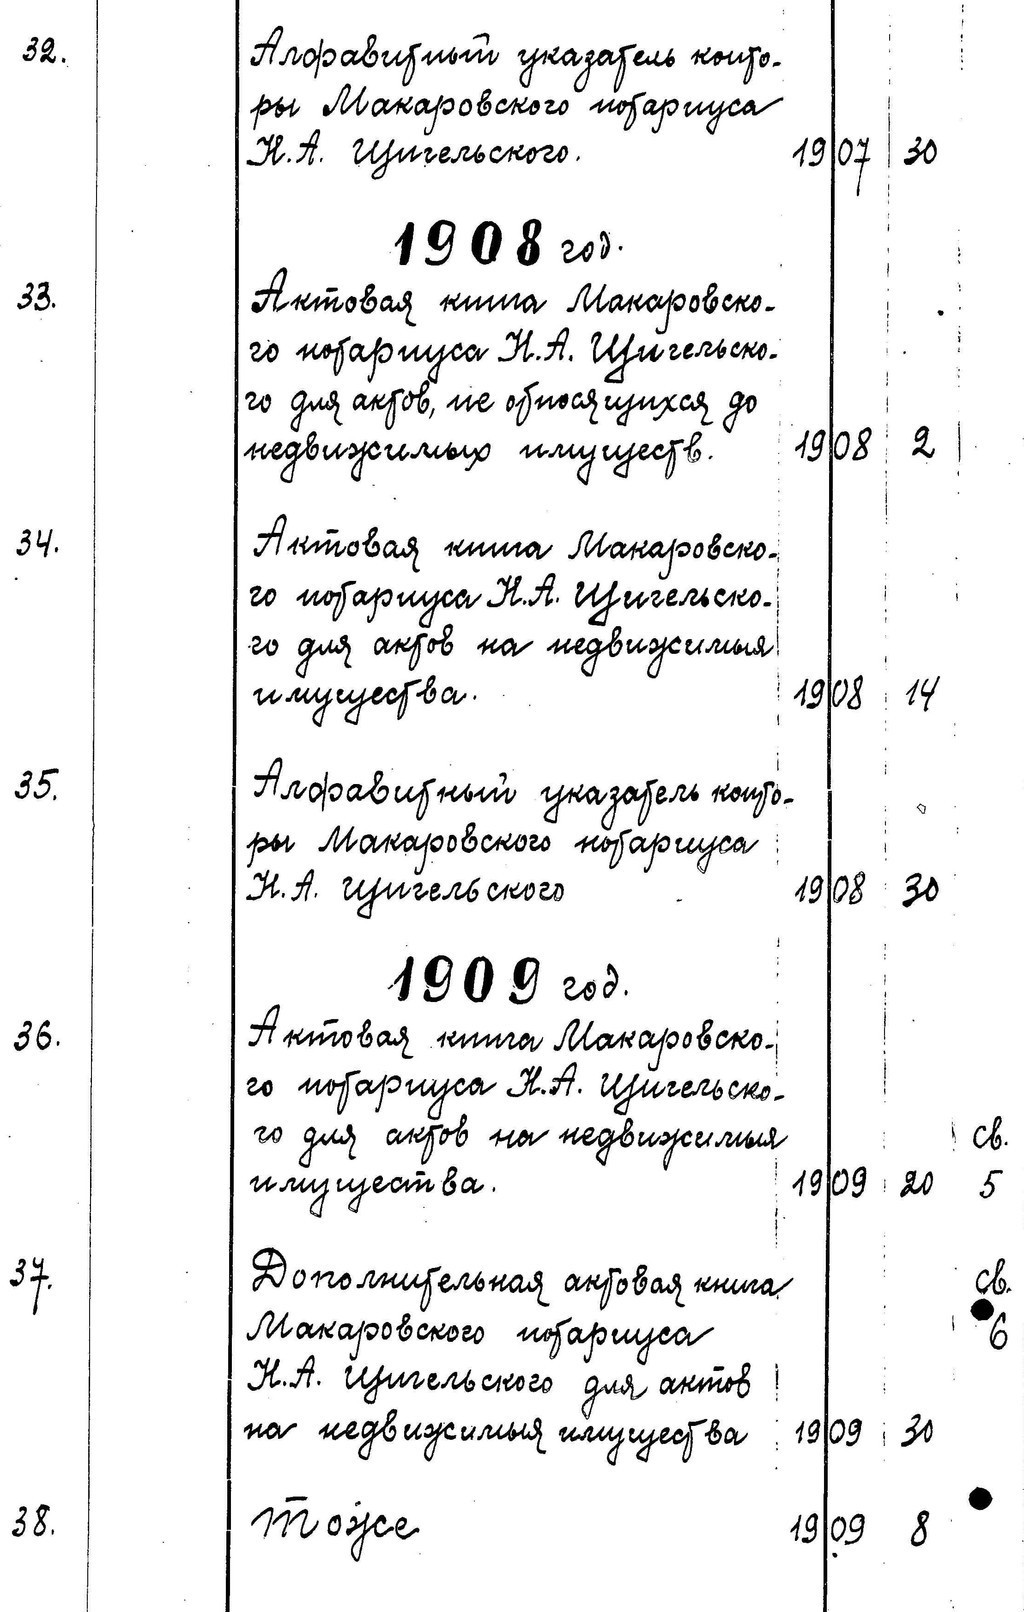 32. Алфавитный указатель конто-
ры Макаровского нотариуса
Н.А. Щигельского. 1907 30
1908 год.
33. Актовая книга Макаровско-
го нотариуса Н.А. Щигельско-
го для актов, не относящихся до
недвижимых имуществ. 1908 2
34. Актовая книга Макаровско-
го нотариуса Н.А. Щигельско-
го для актов на недвижимыя
имущества. 1908 14
35. Алфавитный указатель конто-
ры Макаровского нотариуса
Н.А. Щигельского 1908 30
1909 год.
36. Актовая книга Макаровско-
го нотариуса Н.А. Щигельско-
го для актов на недвижимыя св.
имущества. 1909 20 5
37. Дополнительная актовая книга св.
Макаровского нотариуса 6
Н.А. Щигельского для актов
на недвижимыя имущества 1909 30
38. Тоже 1909 8